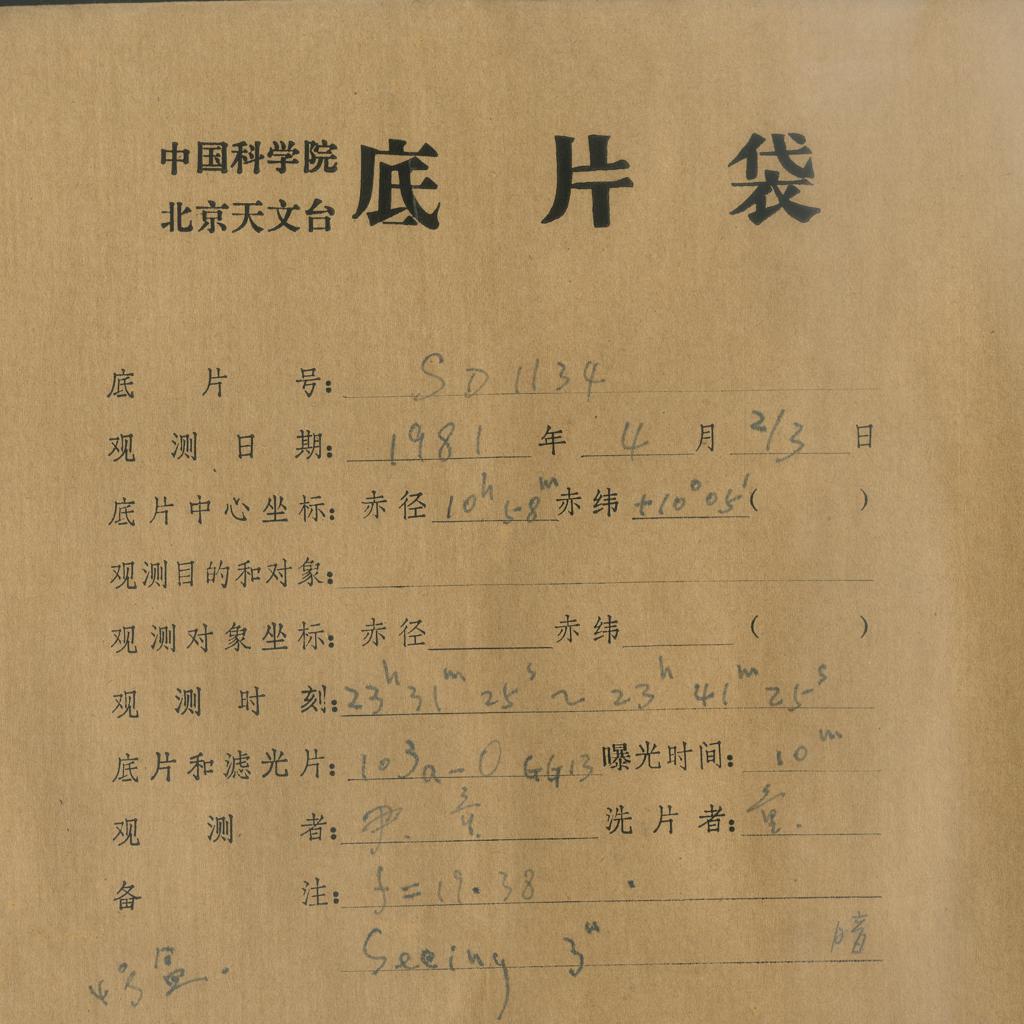 中国科学院
北京天文台
底片袋
底片号: SD1134
观测日期: 1981年4月2/3日
底片中心坐标: 赤径10ʰ58ᵐ赤纬+10°05′( )
观测目的和对象:
观测对象坐标: 赤径 赤纬 ( )
观测时刻: 23ʰ31ᵐ25ˢ~23ʰ41ᵐ25ˢ
底片和滤光片: 103a-O GG13 曝光时间: 10ᵐ
观测者: 洗片者:
备注: f=19.38
Seeing 3" 暗
4号盒.